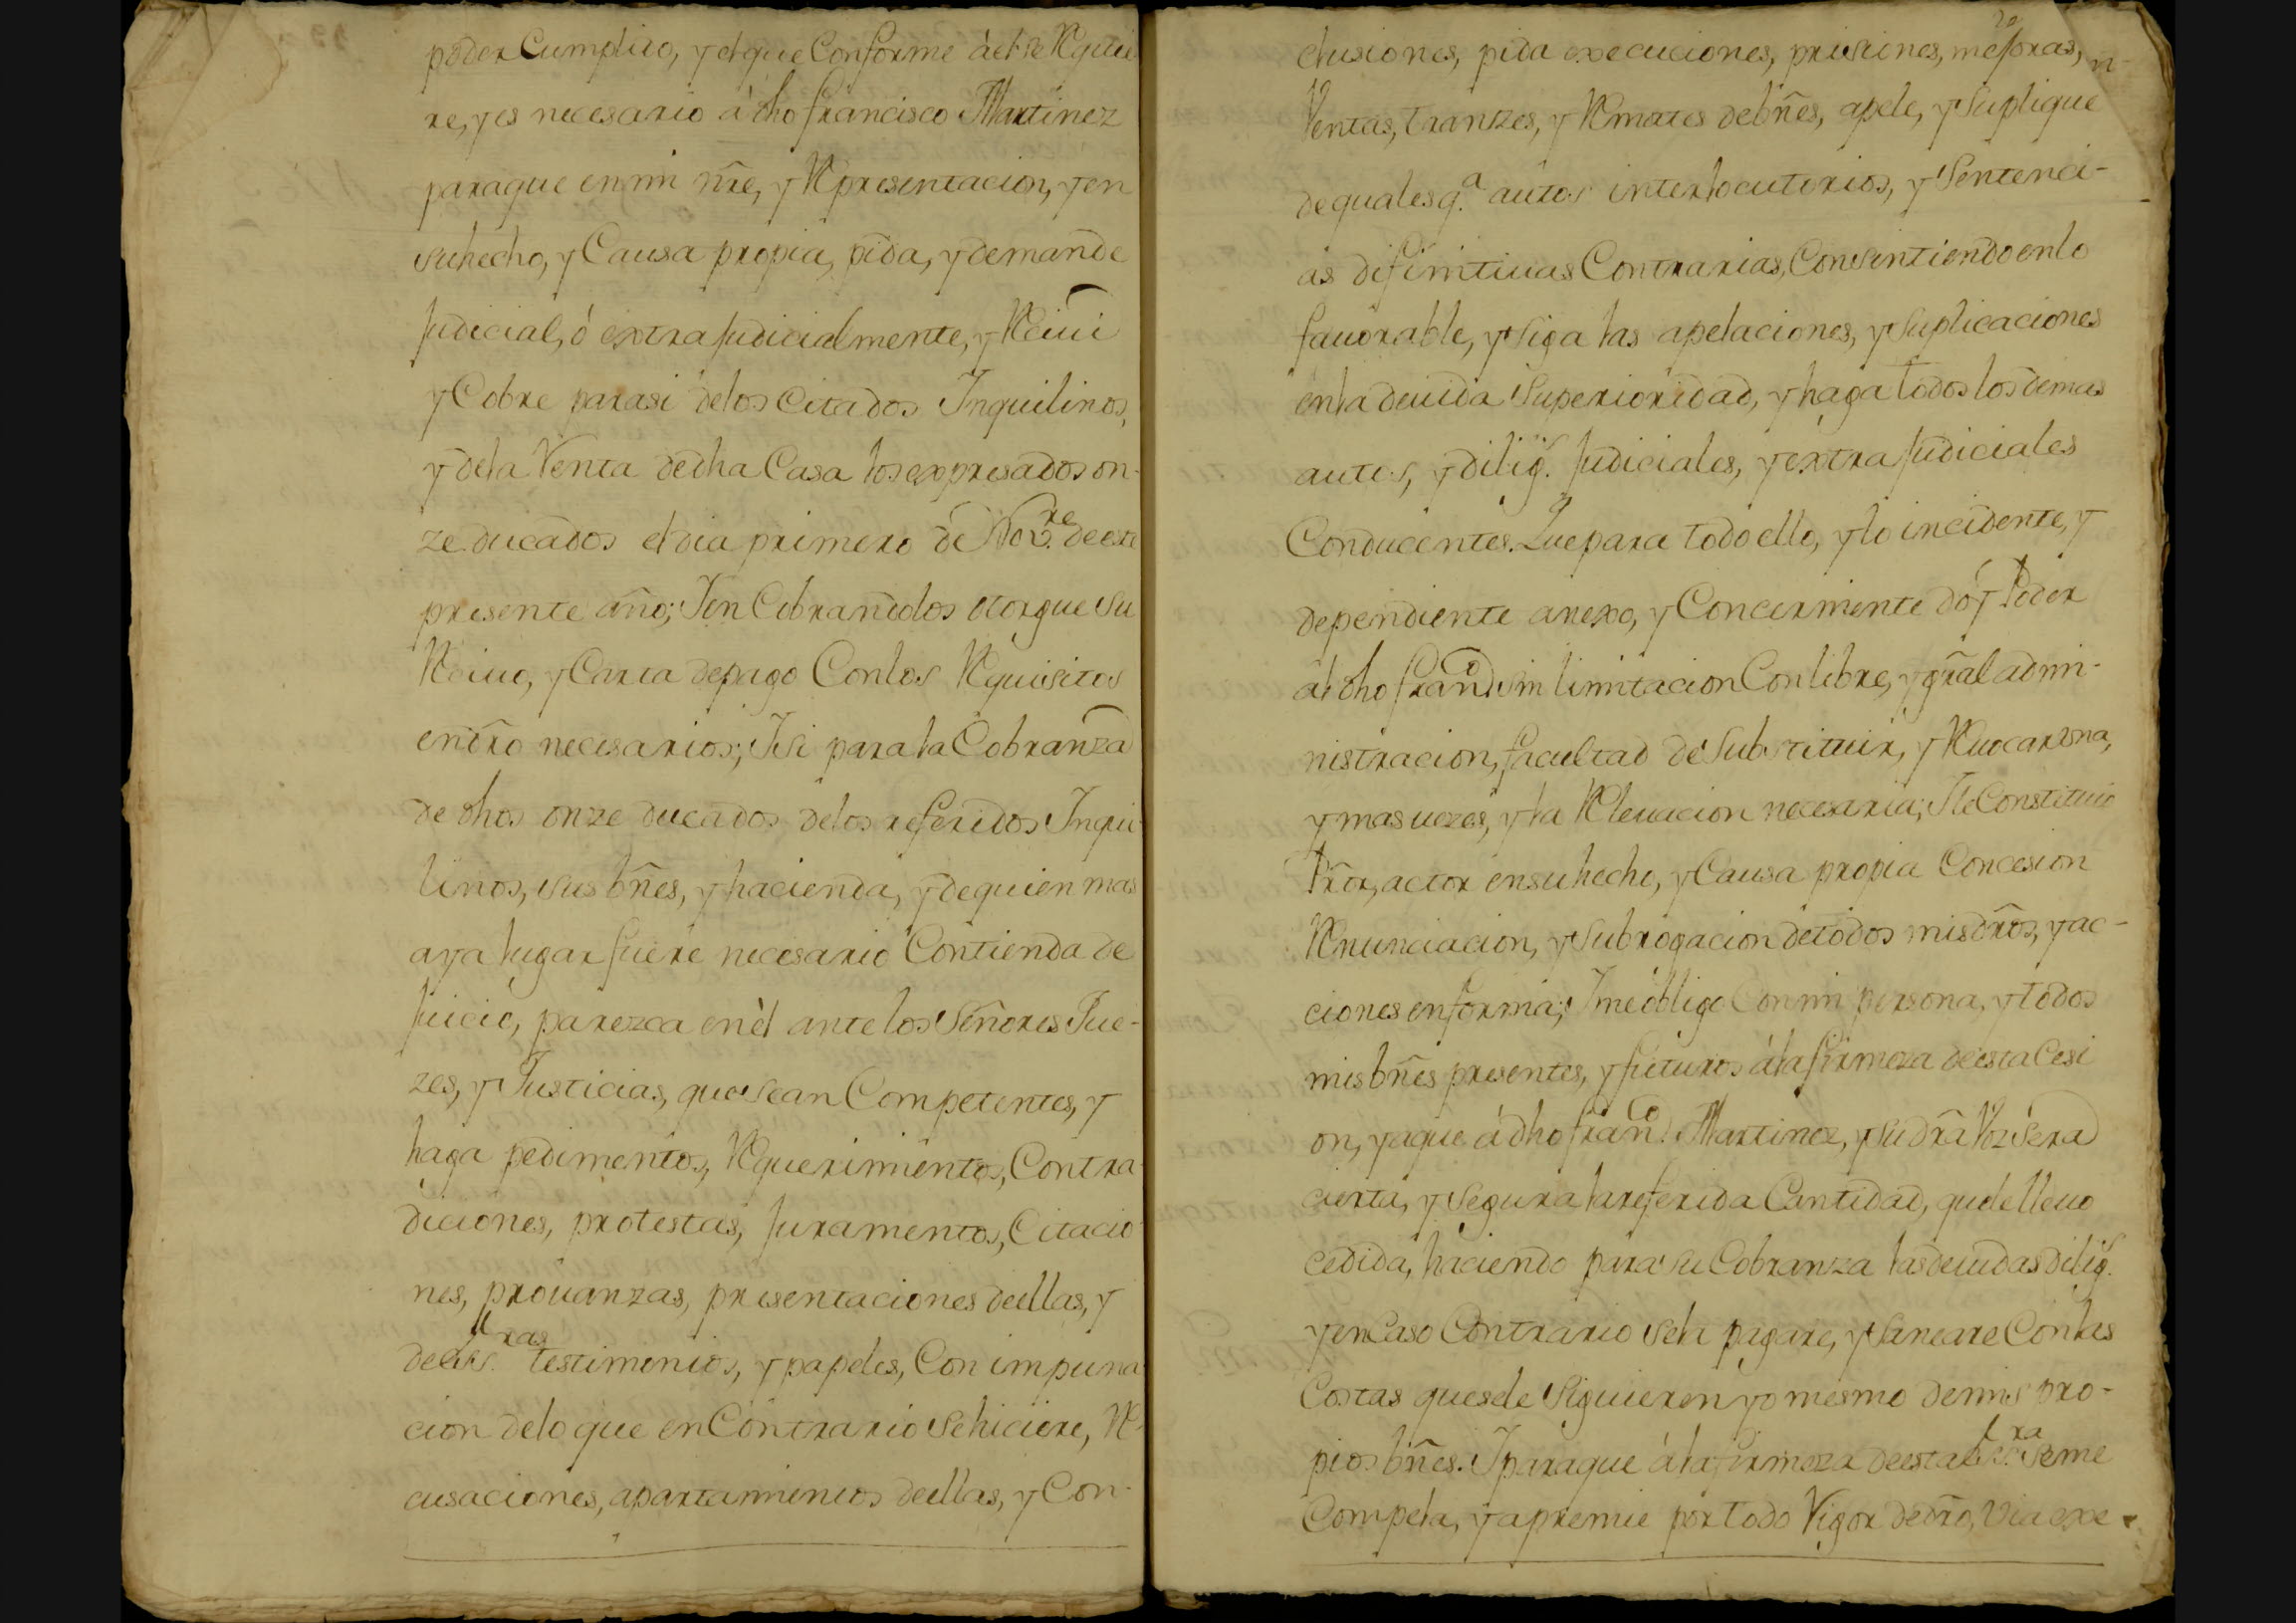 poder Cumplido, y el que Conforme à el se Requie
re, y es necesario à dho francisco Martinez
paraque en mi nr̃e, y Representacion, y en
suhecho, y Causa propia, pida, y demande
Judicial, ó extraJudicialmente, y Reciui
y Cobre parasi delos Citados Inquilinos,
y dela Venta dedha Casa los expresados on-
ze ducados el dia primero de Nov.re de este
presente año; Y en Cobrandolos otorgue su
Reciuo, y Carta depago Conlos Requisitos
endr̃o necesarios; Y si parala Cobranza
de dhos onze ducados delos referidos Inqui-
linos, sus bñes, y hacienda, y dequien mas
aya lugar fuere necesario Contienda de
Juicio, parezca en èl ante los Señores Jue-
zes, y Justicias, que sean Competentes, y
haga pedimentos, Requerimientos, Contra-
diciones, protestas, Juramentos, Citacio
nes, prouanzas, presentaciones deellas, y
de ess.ras testimonios, y papeles, Con impuna
cion delo que en Contrario sehiciere, Re-
cusaciones, apartamientos deellas, y Con-
20
clusiones, pida execuciones, prisiones, mejoras,
Ventas, tranzes, y Remates debñes, apele, y Suplique
de qualesq.a autos interlocutorios, y Sentenci-
as difinitiuas Contrarias, Consintiendo enlo
fauorable, y siga las apelaciones, y Suplicaciones
enla deuida Superioridad, y haga todos los demas
autos, y dilig.s Judiciales, y extraJudiciales
Conducentes. Que para todo ello, y lo incidente, y
dependiente anexo, y Concerniente dóy Poder
àl dho fran.co sin limitacion Con libre, y gr̃al admi-
nistracion, facultad de Substituir, y Reuocar una,
y mas uezes, y la Releuacion necesaria; Y le Constituio
Pr̃or, actor ensuhecho, y Causa propia Concesion
Renunciacion, y Subrogacion detodos misdr̃os, y ac-
ciones enforma; Y meòbligo Con mi persona, y todos
mis bñes presentes, y futuros àla firmeza deesta Cesi
on, y aque à dho fran.co Martinez, y su dr̃a Voz Serà
cierta, y Segura la referida Cantidad, quele lleuo
cedida, haciendo para su Cobranza las deuidas dilig.s
y en Caso Contrario sela pagare, y saneare Con las
Costas quesele Siguieren yo mesmo demis pro-
pios bñes. Y paraque à la firmeza deesta ess.ra Se me
Compela, y apremie por todo Vigor dedr̃o, via exe